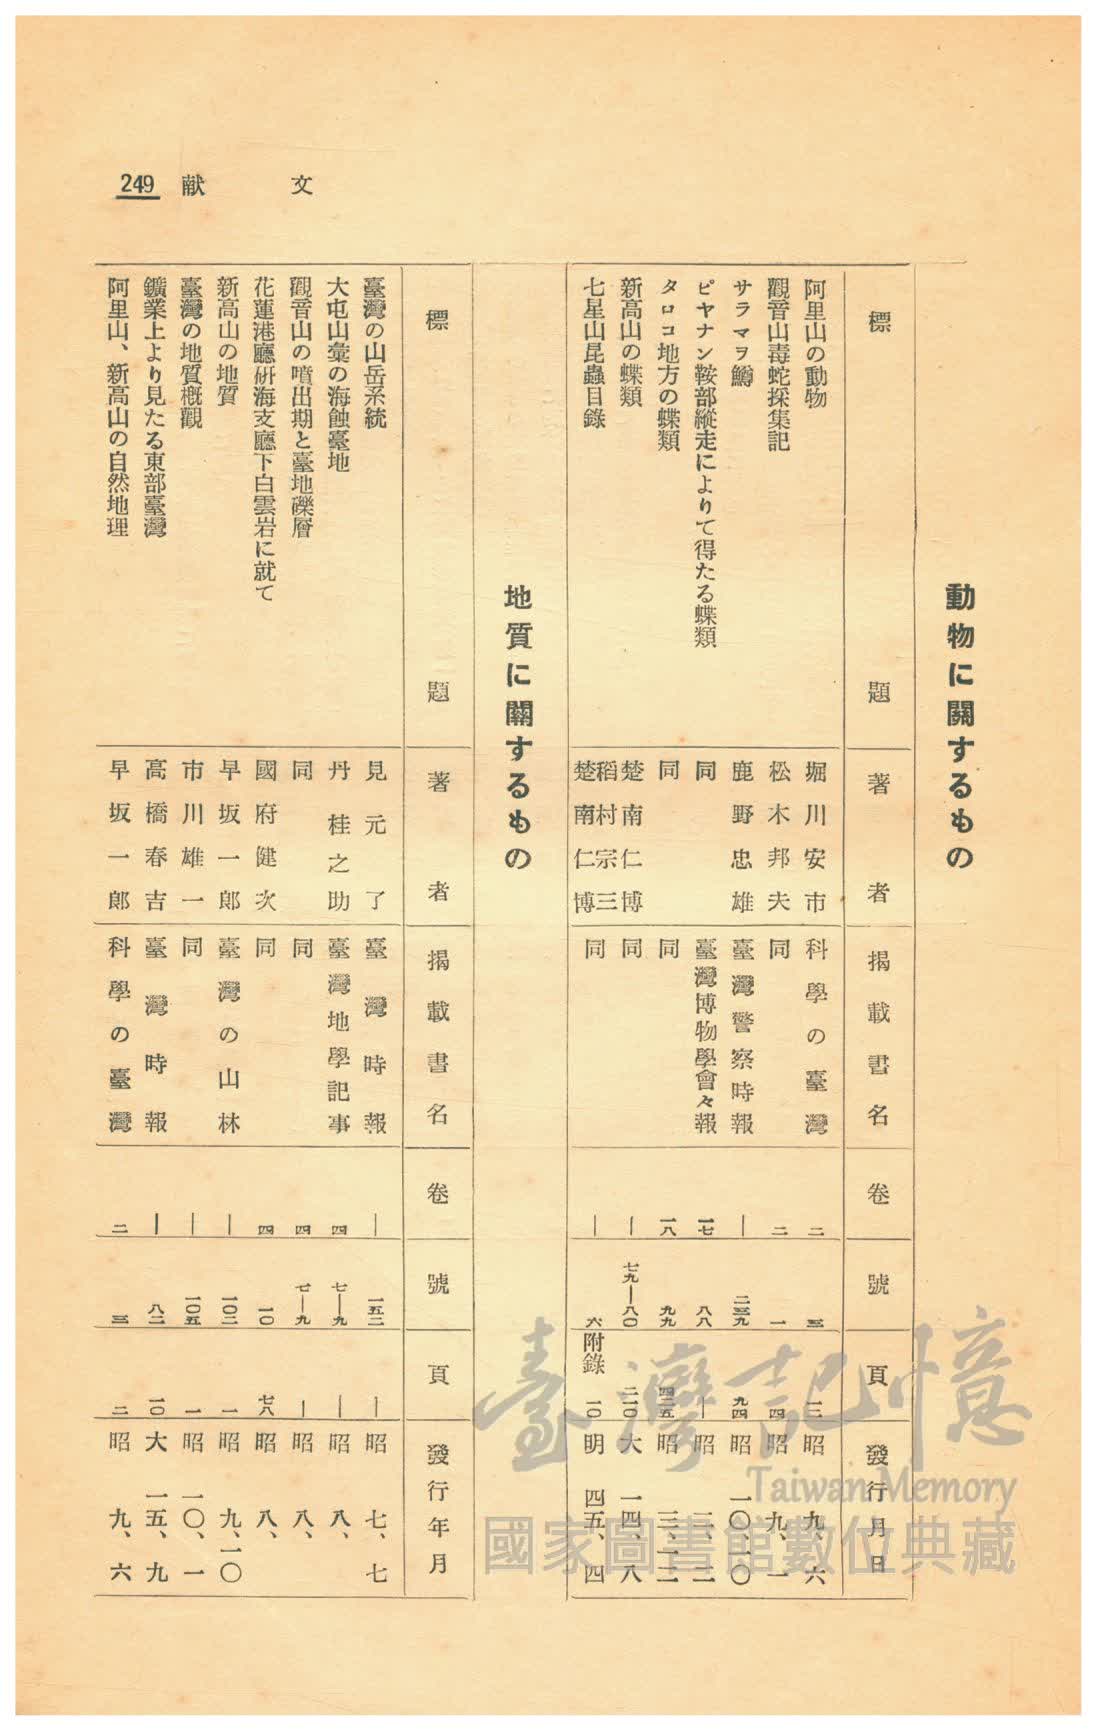 文献 249
動物に關するもの
標題 著者 揭載書名 卷 號 頁 發行月日
阿里山の動物 堀川安市 科學の臺灣 二 三 一二 昭九、六
觀音山毒蛇採集記 松木邦夫 同 二 一 四 昭九、一
サラマヲ鱒 鹿野忠雄 臺灣警察時報 — 二三九 九四 昭一〇、一〇
ピヤナン鞍部縱走によりて得たる蝶類 同 臺灣博物學會々報 一七 八八 — 昭二、二
タロコ地方の蝶類 同 同 一八 九九 四二五 昭三、一二
新高山の蝶類 楚南仁博 同 — 七九—八〇 二一〇 大一四、八
七星山昆蟲目錄 稻村宗三 楚南仁博 同 — 六 附錄一〇 明四五、四
地質に關するもの
標題 著者 揭載書名 卷 號 頁 發行年月
臺灣の山岳系統 見元了 臺灣時報 — 一五二 — 昭七、七
大屯山彙の海蝕臺地 丹桂之助 臺灣地學記事 四 七—九 — 昭八、
觀音山の噴出期と臺地礫層 同 同 四 七—九 — 昭八、
花蓮港廳硏海支廳下白雲岩に就て 國府健次 同 四 一〇 七八 昭八、
新高山の地質 早坂一郎 臺灣の山林 — 一〇二 一 昭九、一〇
臺灣の地質槪觀 市川雄一 同 — 一〇五 一 昭一〇、一
鑛業上より見たる東部臺灣 高橋春吉 臺灣時報 — 八二 一〇 大一五、九
阿里山、新高山の自然地理 早坂一郎 科學の臺灣 二 三 二 昭九、六
臺灣記憶
Taiwan Memory
國家圖書館數位典藏